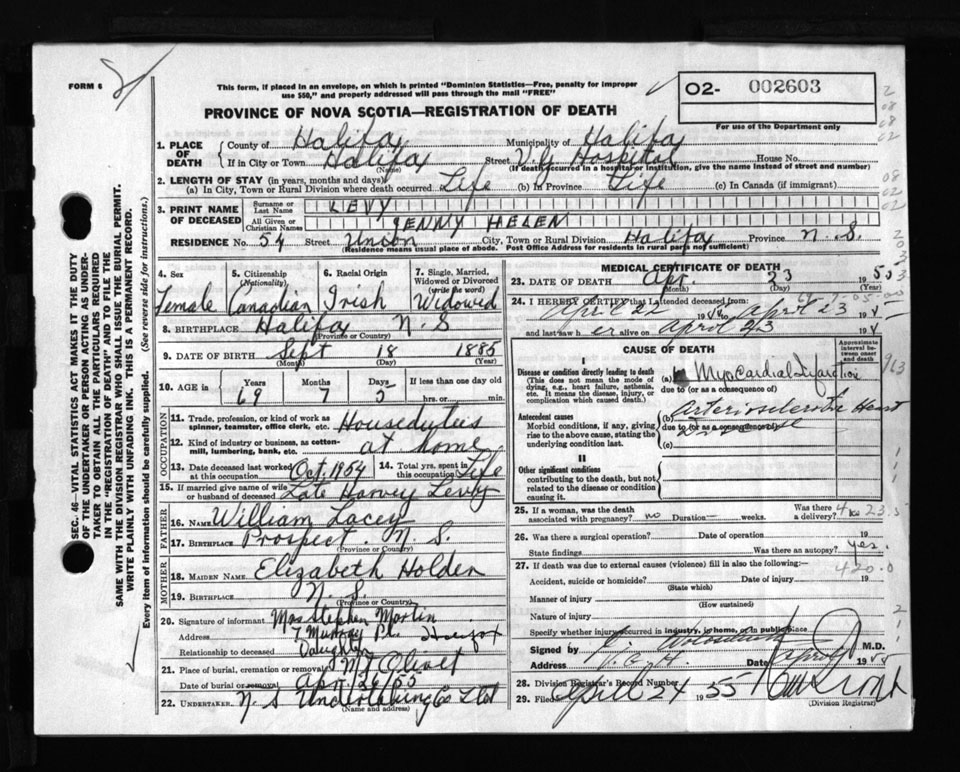 FORM 6
This form, if placed in an envelope, on which is printed "Dominion Statistics—Free, penalty for improper
use $50," and properly addressed will pass through the mail "FREE"
O2- 002603
PROVINCE OF NOVA SCOTIA—REGISTRATION OF DEATH
For use of the Department only
1. PLACE OF DEATH
County of Halifax Municipality of Halifax
If in City or Town Halifax Street V.G. Hospital House No.
(Name) (If death occurred in a hospital or institution, give the name instead of street and number)
2. LENGTH OF STAY (in years, months and days)
(a) In City, Town or Rural Division where death occurred Life (b) In Province Life (c) In Canada (if immigrant)
3. PRINT NAME OF DECEASED
Surname or Last Name LEVY
All Given or Christian Names JENNY HELEN
RESIDENCE No. 54 Street Union City, Town or Rural Division Halifax Province N.S.
(Residence means usual place of abode. Post Office Address for residents in rural parts not sufficient)
4. Sex Female
5. Citizenship (Nationality) Canadian
6. Racial Origin Irish
7. Single, Married, Widowed or Divorced (write the word) Widowed
8. BIRTHPLACE Halifax N.S
(Province or Country)
9. DATE OF BIRTH Sept 18 1885
(Month) (Day) (Year)
10. AGE in Years 69 Months 7 Days 5 If less than one day old hrs. or min.
OCCUPATION
11. Trade, profession, or kind of work as spinner, teamster, office clerk, etc. Houseduties
12. Kind of industry or business, as cotton-mill, lumbering, bank, etc. at home
13. Date deceased last worked at this occupation Oct, 1954
14. Total yrs. spent in this occupation Life
15. If married give name of wife or husband of deceased Late Harvey Levy
FATHER
16. NAME William Lacey
17. BIRTHPLACE Prospect. N.S.
(Province or Country)
MOTHER
18. MAIDEN NAME Elizabeth Holden
19. BIRTHPLACE N.S.
(Province or Country)
20. Signature of informant Mrs Stephen Martin
Address 7 Murray Pl. Halifax
Relationship to deceased Daughter
21. Place of burial, cremation or removal Mt Olivet
Date of burial or removal Apr/26/55
22. UNDERTAKER N.S Undertaking Co Ltd
(Name and address)
MEDICAL CERTIFICATE OF DEATH
23. DATE OF DEATH Apr 23 1955
(Month) (Day) (Year)
24. I HEREBY CERTIFY that I attended deceased from:
April 22 1955 to April 23 195
and last saw her alive on April 23 195
CAUSE OF DEATH
Approximate interval between onset and death
I
Disease or condition directly leading to death
(This does not mean the mode of dying, e.g., heart failure, asthenia, etc. It means the disease, injury, or complication which caused death.)
(a) Myocardial Infarction
due to (or as a consequence of)
Antecedent causes
Morbid conditions, if any, giving rise to the above cause, stating the underlying condition last.
(b) Arteriosclerotic Heart
due to (or as a consequence of)
Disease
(c)
II
Other significant conditions
contributing to the death, but not related to the disease or condition causing it.
25. If a woman, was the death associated with pregnancy? no Duration— weeks. Was there a delivery?
26. Was there a surgical operation? Date of operation 19
State findings Was there an autopsy? yes.
27. If death was due to external causes (violence) fill in also the following:— 420.0
Accident, suicide or homicide? Date of injury 19
(State which)
Manner of injury
(How sustained)
Nature of injury
Specify whether injury occurred in industry, in home, or in public place
Signed by M.D.
Address V.G.H. Date 1955
28. Division Registrar's Record Number
29. Filed April 24 1955
(Division Registrar)
SEC. 46—VITAL STATISTICS ACT MAKES IT THE DUTY
OF THE UNDERTAKER OR PERSON ACTING AS UNDERTAKER TO OBTAIN ALL THE PARTICULARS REQUIRED
IN THE "REGISTRATION OF DEATH" AND TO FILE THE
SAME WITH THE DIVISION REGISTRAR WHO SHALL ISSUE THE BURIAL PERMIT.
WRITE PLAINLY WITH UNFADING INK. THIS IS A PERMANENT RECORD.
Every item of information should be carefully supplied. (See reverse side for instructions.)